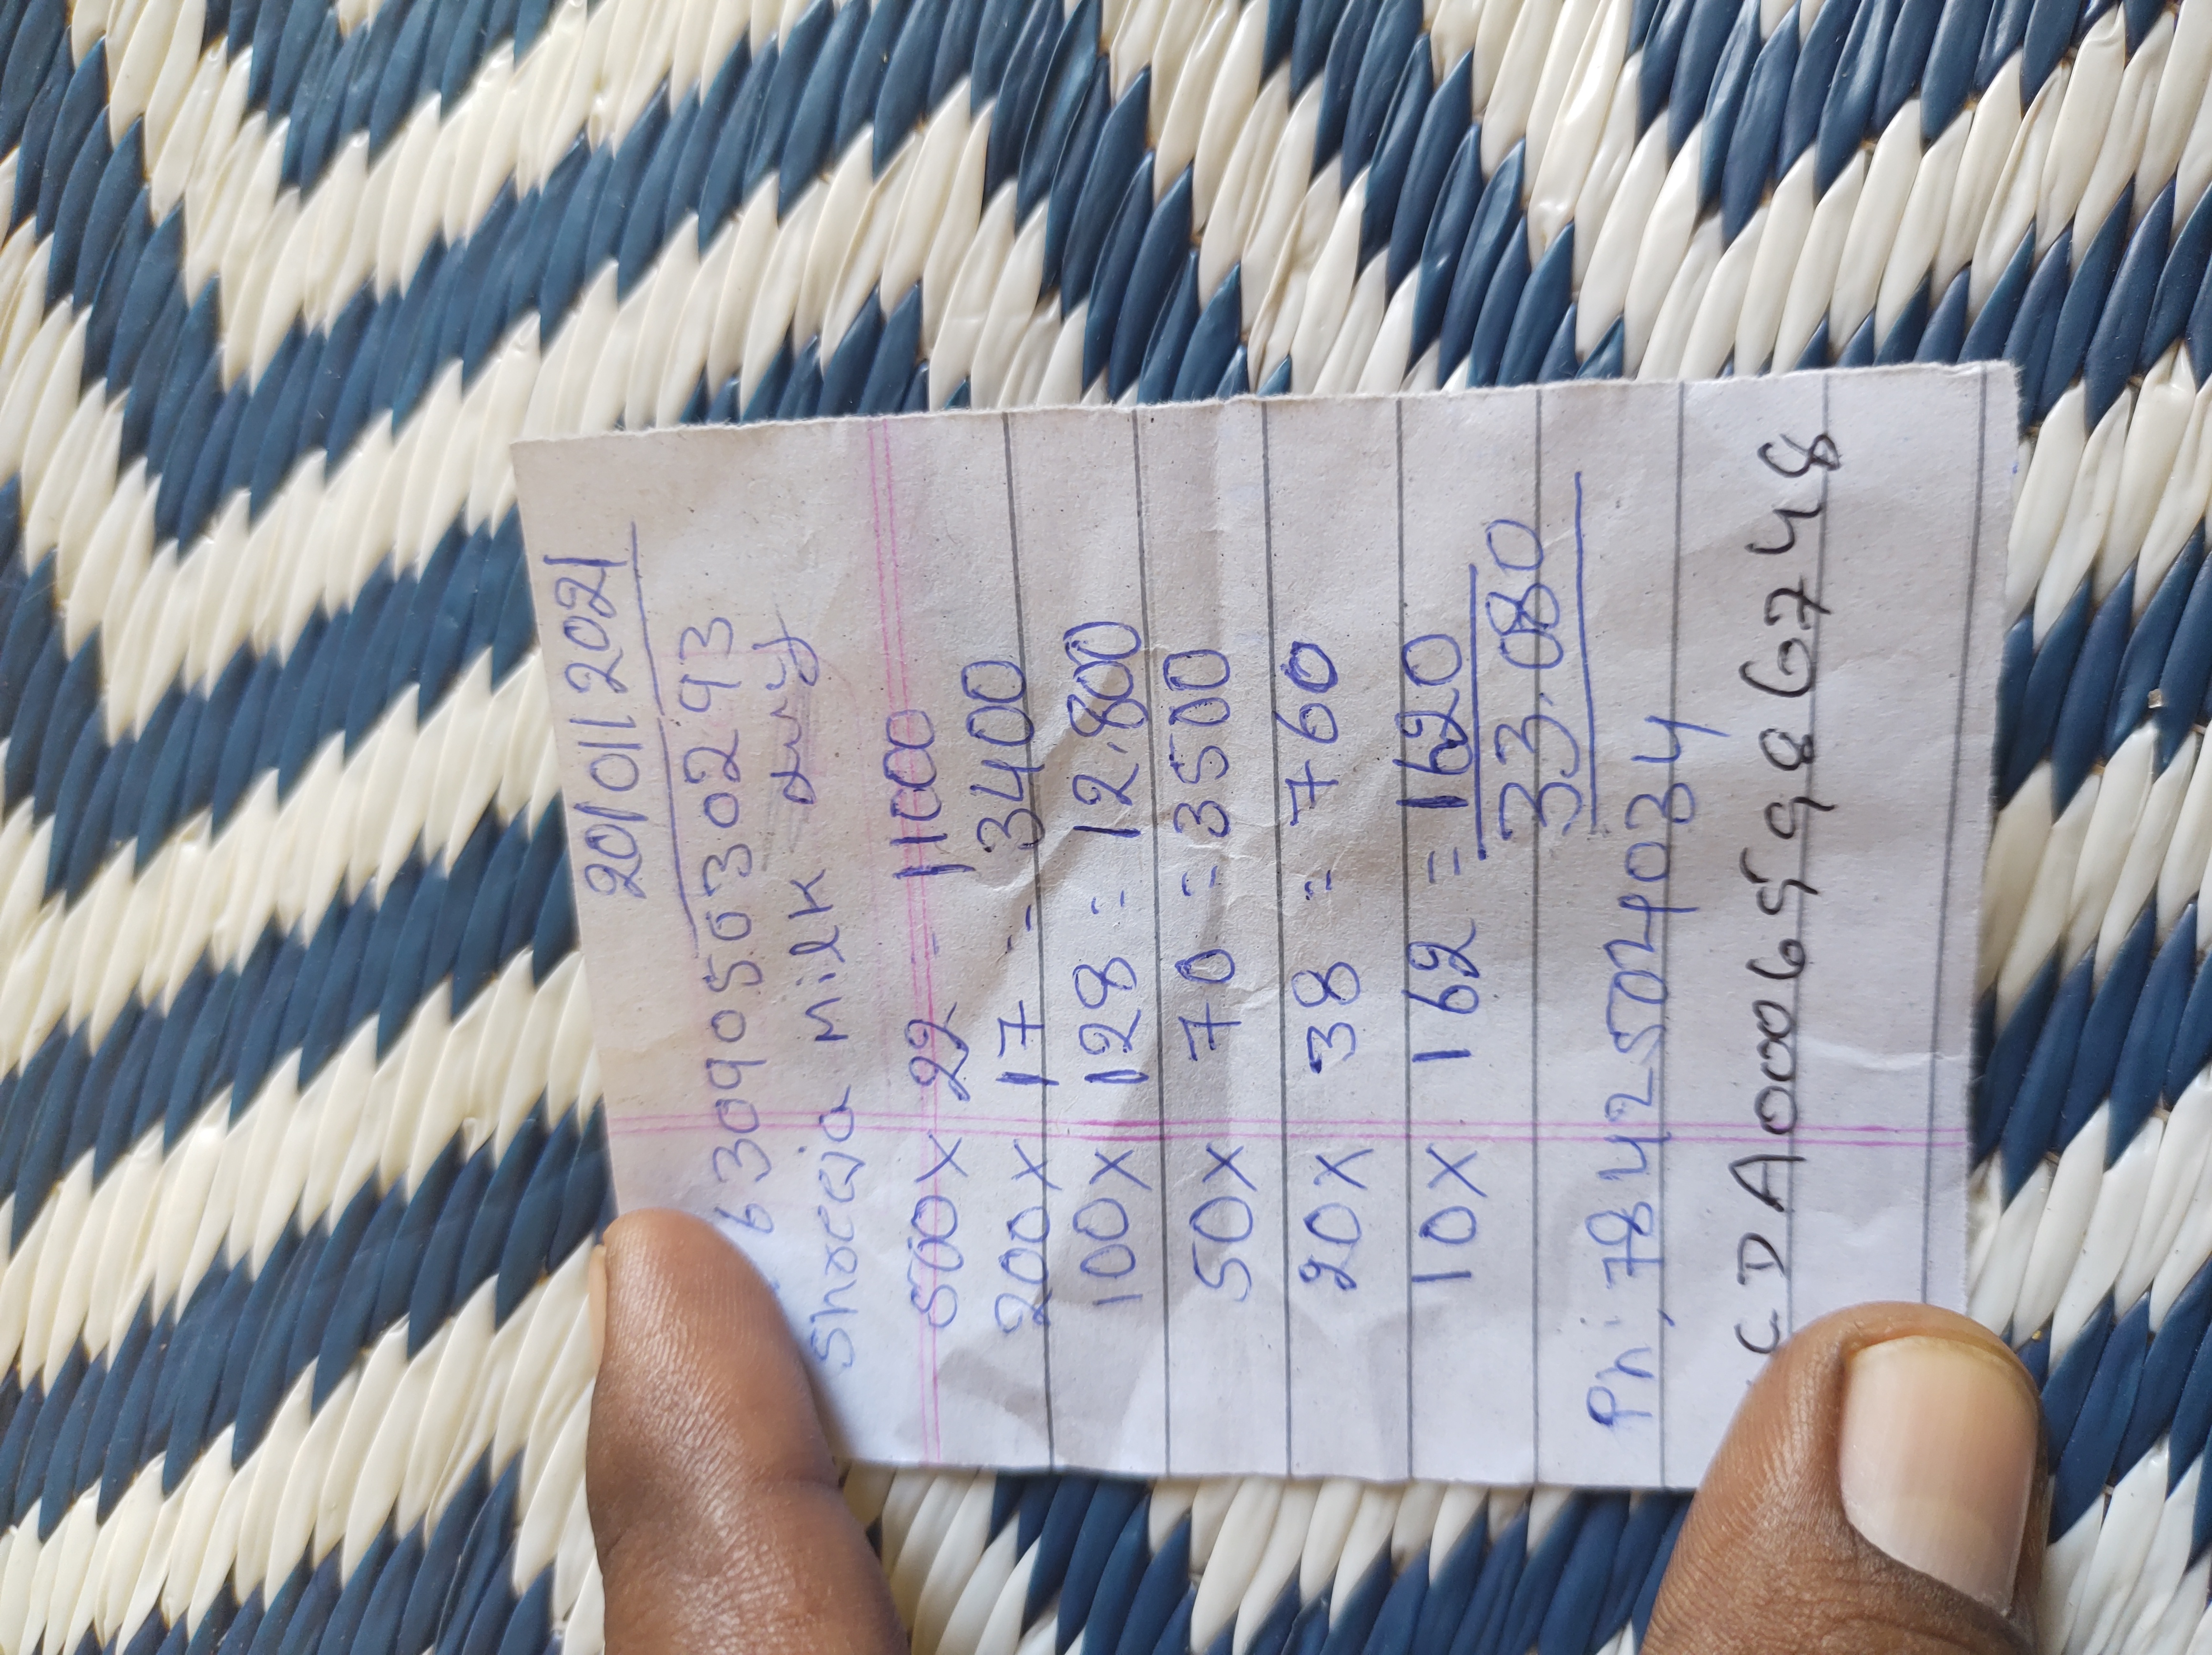 20/01/2021
630905030293
Shreeja Milk
500x 22 = 11000
200x 17 = 3400
100x 128 = 12.800
50x 70 = 3500
20x 38 = 760
10x 162 = 1620
33.080
Ph; 7842504034
CDA000659986748